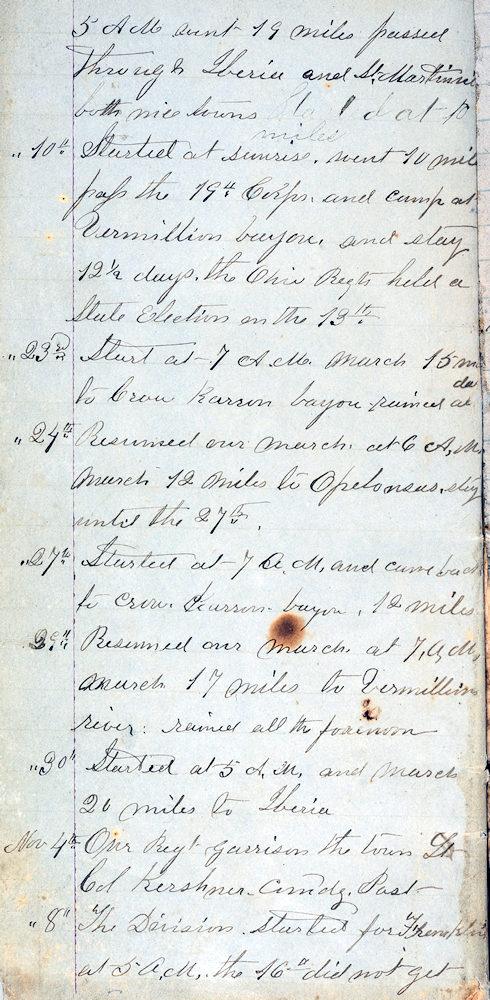 5 A M went 19 miles passed
through Iberia and St. Martin
both nice towns at 10
miles
" 10th Started at sunrise. went 10 mil
pass the 19th Corps. and camp at
Vermillion bayou. and stay
12½ days. the Ohio Regts held a
State Election on the 13th
" 23rd Start at 7 A.M. March 15 m
da
to Crou Karron bayou rained al
" 24th Resumed our march. at 6 A.M.
march 12 miles to Opelousas. stay
until the 27th.
" 27th Started at 7 A.M. and came back
to crou Karron bayou, 12 miles
29th Resumed our march at 7, A,M,
march 17 miles to Vermillion
river: rained all th forenoon
" 30th Started at 5 A.M. and march
20 miles to Iberia
Nov 4th Our Regt garrison the town Lt
Col Kershner. Cmdg. Post
" 8th The Division started for Franklin
at 5 A.M. the 16th did not get